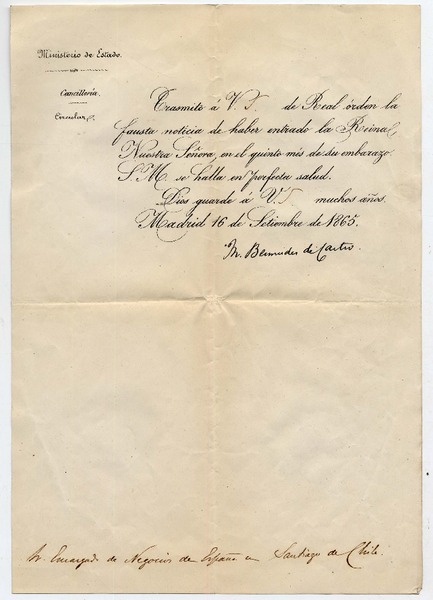 Ministerio de Estado.
Cancillería.
Circular.
Trasmito á V.S. de Real órden la
fausta noticia de haber entrado la Reina
Nuestra Señora, en el quinto mes de su embarazo.
S. M. se halla en perfecta salud.
Dios guarde á V.S. muchos años.
Madrid 16 de Setiembre de 1865.
M. Bermudez de Castro.
Sr. Encargado de Negocios de España en Santiago de Chile.